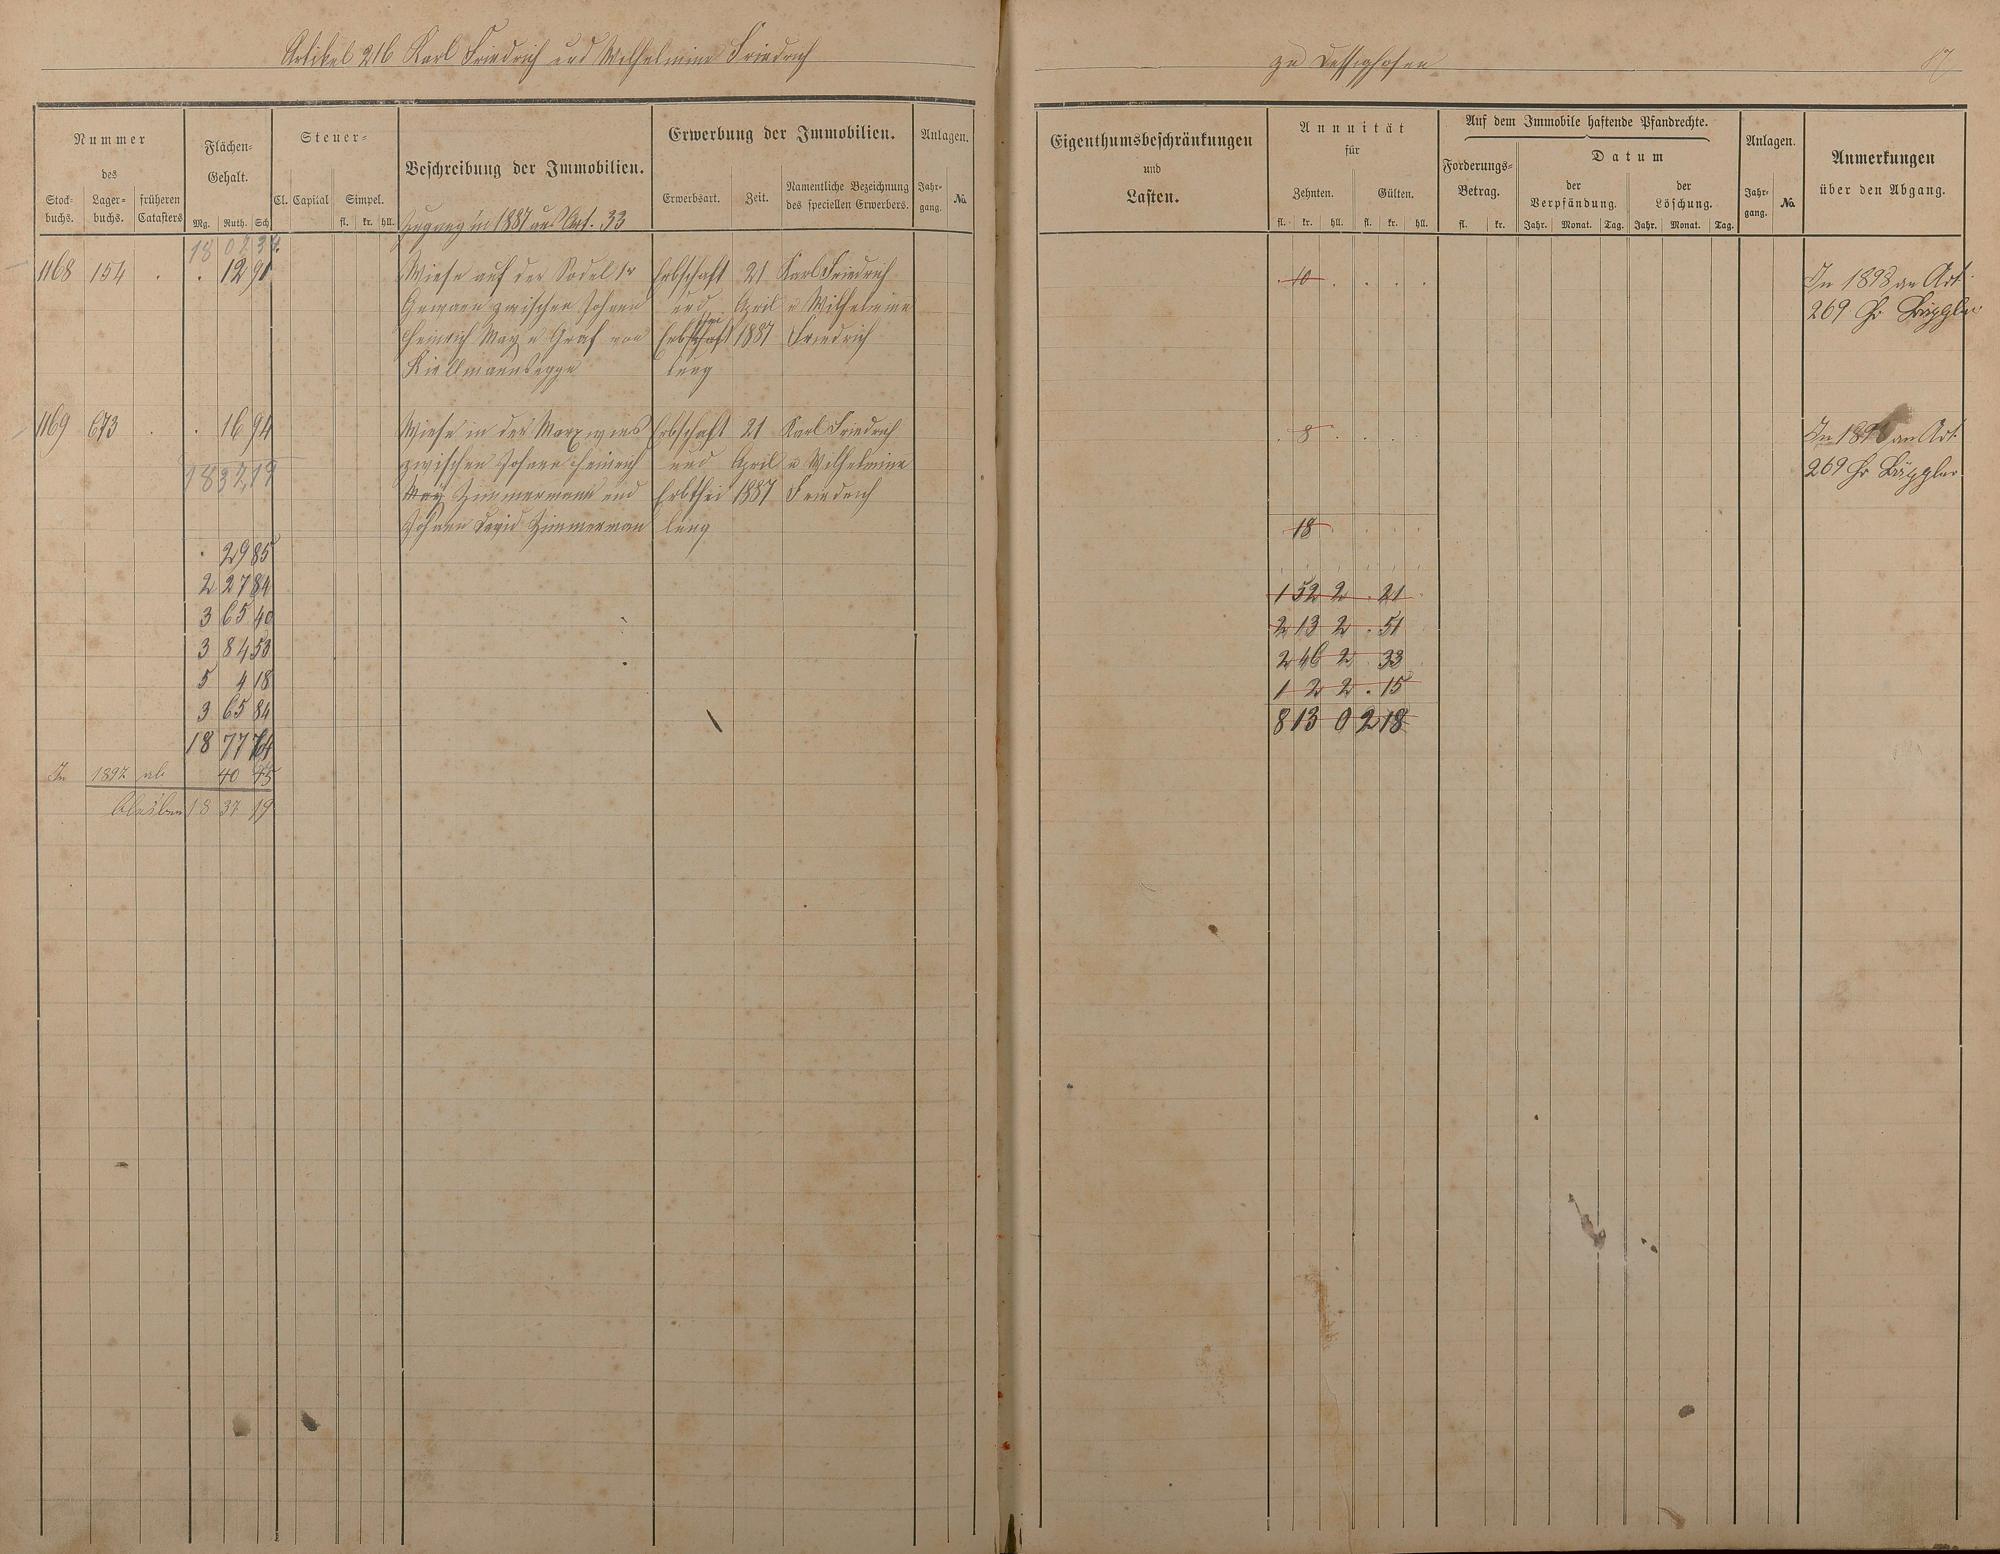 Artikel 216 Karl Friedrich und Wilhelmine Friedrich
zu Dessighofen
Nummer
des
Stock-
buchs.
Lager-
buchs.
früheren
Catasters
Flächen-
Gehalt.
Mg. Ruth. Sch
Steuer-
Cl. Capital Simpel.
fl. kr. hll.
Beschreibung der Immobilien.
Zugang in 1887 aus Art. 33
Erwerbung der Immobilien.
Erwerbsart. Zeit. Namentliche Bezeichnung
des speciellen Erwerbers.
Anlagen.
Jahr-
gang. No.
Eigenthumsbeschränkungen
und
Lasten.
Annuität
für
Zehnten. Gülten.
fl. kr. hll. fl. kr. hll.
Auf dem Immobile haftende Pfandrechte.
Forderungs-
Betrag.
fl. kr.
Datum
der
Verpfändung.
der
Löschung.
Jahr. Monat. Tag. Jahr. Monat. Tag.
Anlagen.
Jahr-
gang. No.
Anmerkungen
über den Abgang.
1168 154 . . 12 91 Wiese auf der Sodel 1r Erbschaft 21 Karl Friedrich 10 . . . . In 1898 an Art.
Gewann zwischen Johann und April u Wilhelmine 269
Heinrich May u Graf von 1887 Friedrich
Kiellmannsegge lung
1169 673 . . 16 94 Wiese in der Erbschaft 21 Karl Friedrich . 8 . . . . In 1898 an Art.
18 37 19 zwischen Johann Heinrich und April u Wilhelmine 269
May Zimmermann und Erbthei 1887 Friedrich
Johann David Zimmerman lung 18
. 29 85
2 27 84 1 52 2 . 21
3 65 40 2 13 2 . 51
3 84 53 2 46 2 . 33
5 4 18 1 2 2 . 15
3 65 84 8 13 0 2 18
18 77 64
In 1892 ab 40 45
bleiben 18 37 19